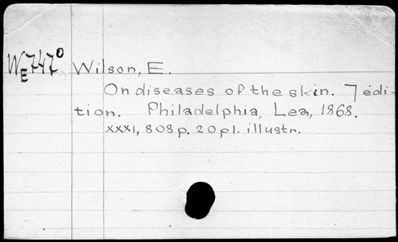 WE747⁰ Wilson, E.
On diseases of the skin. 7 edi-
tion. Philadelphia, Lea, 1868.
XXXI, 808 p. 20 pl. illustr.